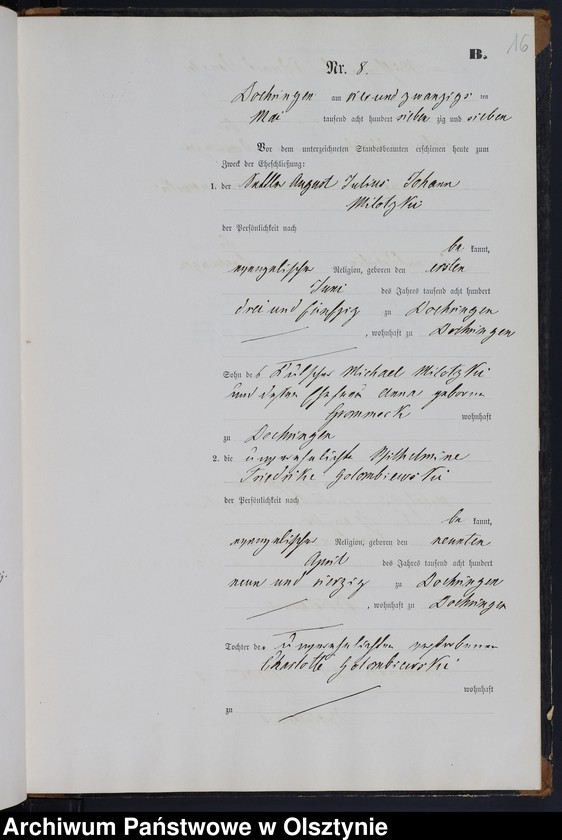 16
B.
Nr. 8.
Doehringen am vier und zwanzigs ten
Mai tausend acht hundert sieben zig und sieben
Vor dem unterzeichneten Standesbeamten erschienen heute zum
Zweck der Eheschließung:
1. der Sattler August Julius Johann
Milotzki
der Persönlichkeit nach
be kannt,
evangelischer Religion, geboren den ersten
Juni des Jahres tausend acht hundert
drei und fünfzig zu Doehringen
, wohnhaft zu Doehringen
Sohn des Michael Milotzki
und dessen Ehefrau Anna geborne
Grommeck wohnhaft
zu Doehringen
2. die unverehelichte Wilhelmine
Friedrike Golombiewski
der Persönlichkeit nach
be kannt,
evangelischer Religion, geboren den neunten
April des Jahres tausend acht hundert
neun und vierzig zu Doehringen
, wohnhaft zu Doehringen
Tochter der unverehelichten verstorbenen
Charlotte Golombiewski
wohnhaft
zu
Archiwum Państwowe w Olsztynie